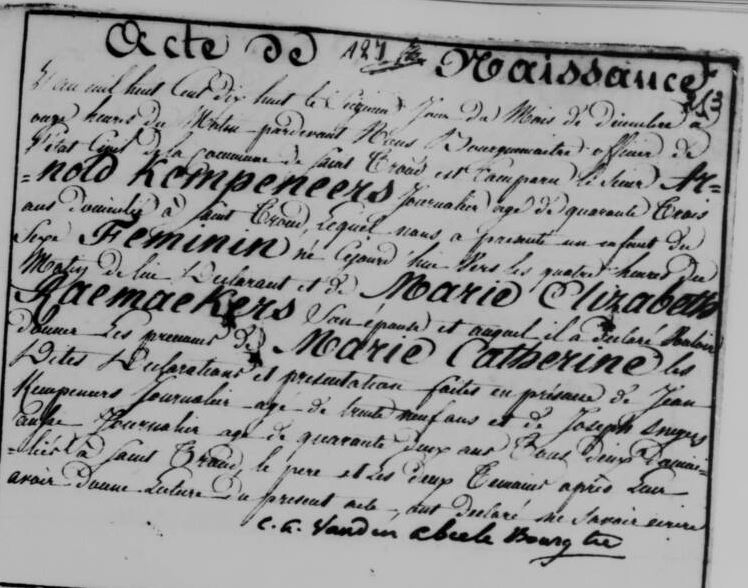 Acte de Naissance
L'an mil huit Cent dix huit le Cinquieme Jour du Mois de décembre à
onze heures du Matin pardevant Nous Bourguemaitre officier de
l'état Civil de la commune de Saint Trond est Comparu le sieur Ar-
=nold Kempeneers Journalier agé de quarante Trois
ans domicilié à Saint Trond, Lequel nous a presenté un enfant du
Sexe Feminin né Cejourd'hui Vers les quatre heures du
Matin de lui Déclarant et de Marie Elizabeth
Raemaekers Son épouse et auquel il a declaré Vouloir
donner les prenoms de Marie Catherine les
Dites Déclarations et presentation faites en présence de Jean
Kempeneers Journalier agé de trente neuf ans et de Joseph
Journalier agé de quarante deux ans Tous deux Domici-
-liés à Saint Trond, le pere et les deux Temoins après Leur
avoir donné Lecture du present acte, ont declaré ne Savoir écrire
C. A. Vanden abeele Bourgtre